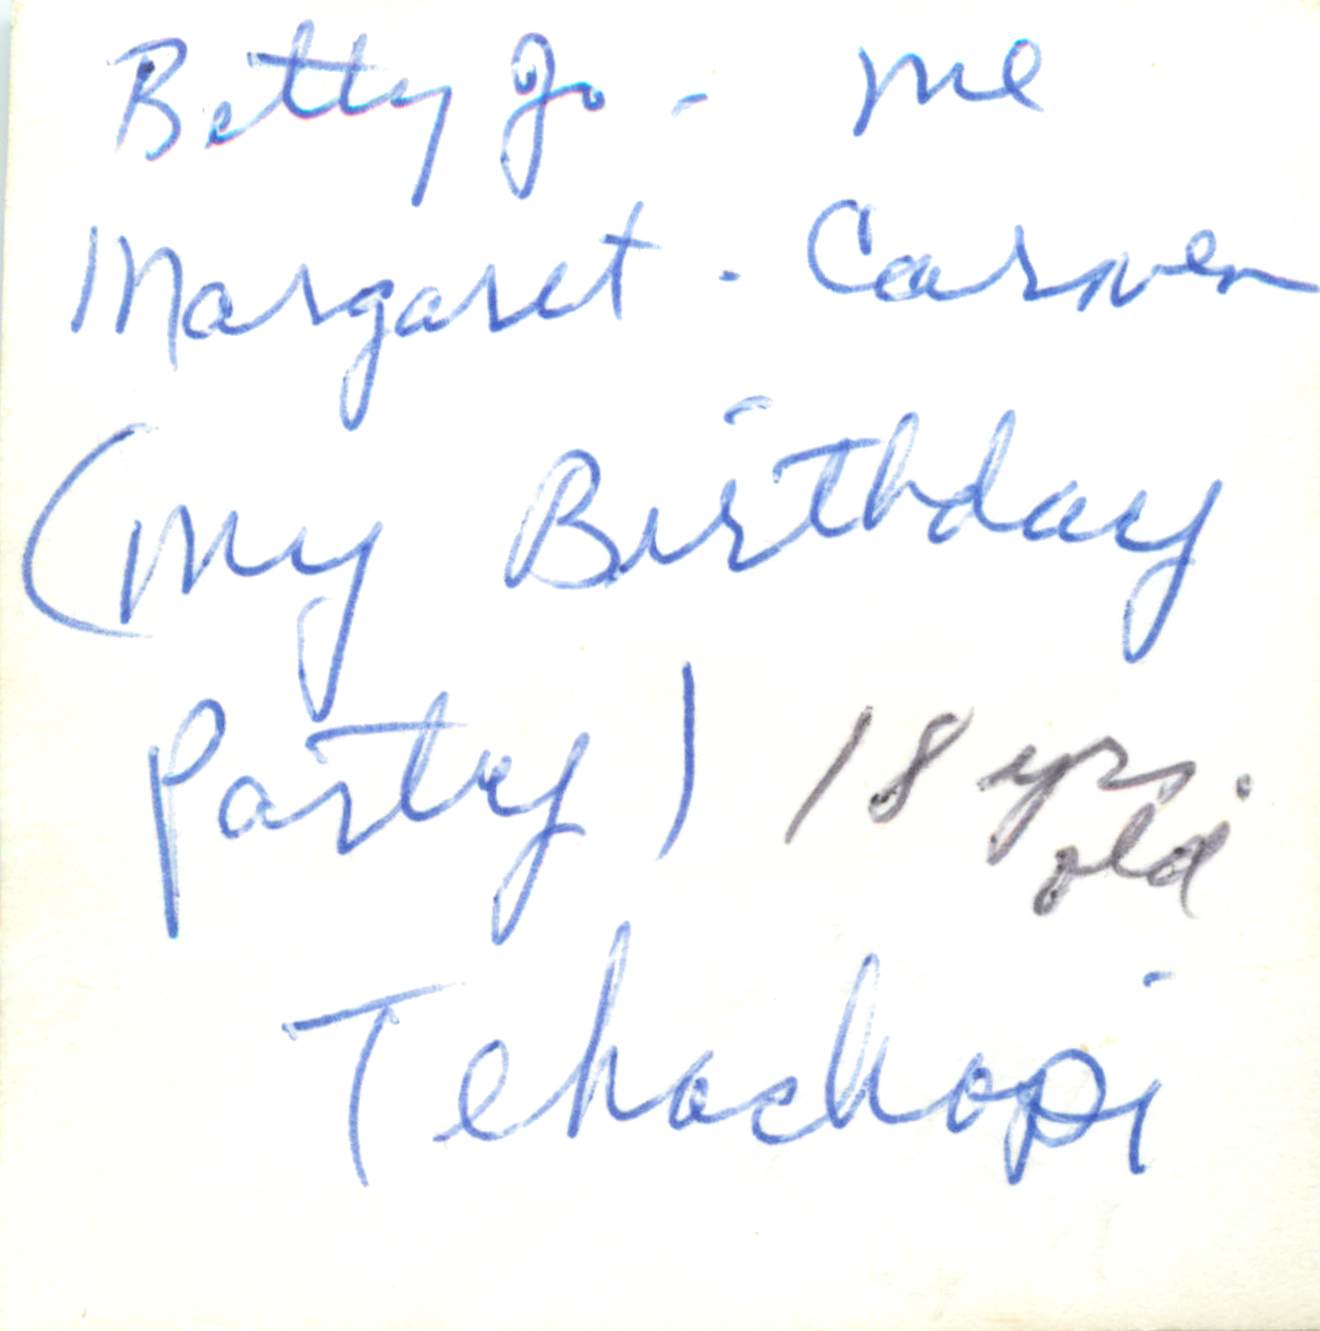 Betty Jo - me
Margaret - Carmen
(my Birthday
Party) 18 yrs.
old
Tehachapi